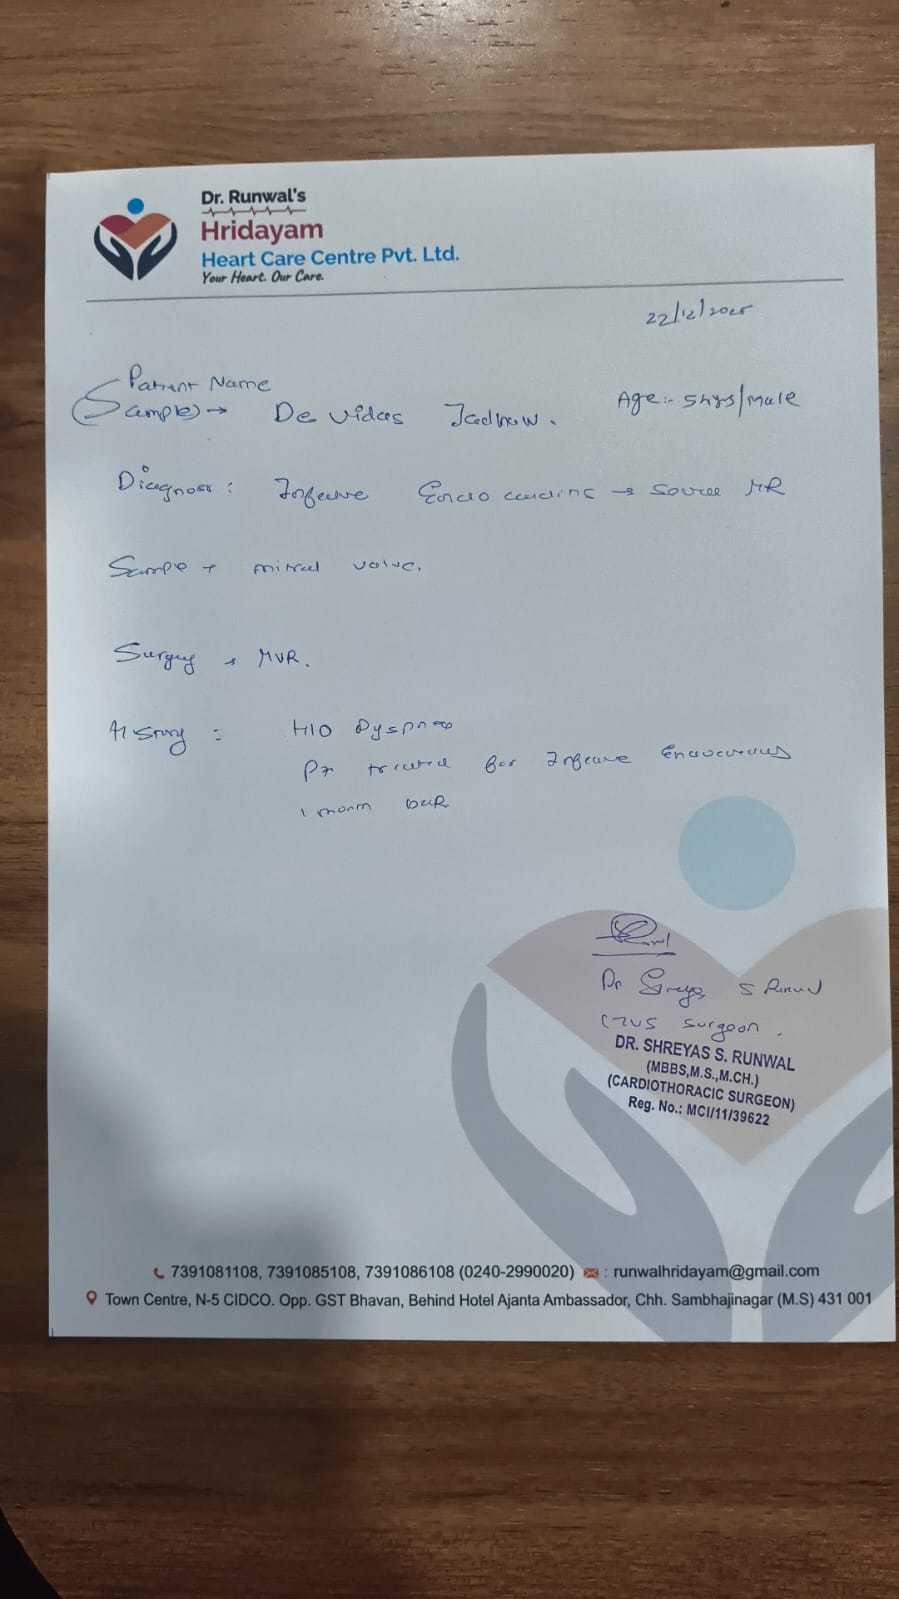 Dr. Runwal's
Hridayam
Heart Care Centre Pvt. Ltd.
Your Heart. Our Care.
22/12/2025
Patient Name
(Sample) → Devidas Jadhav. Age:- /male
Diagnosis: Infective Endocarditis → severe MR
Sample → mitral valve.
Surgery → MVR.
History : H/O Dyspnea
Pt treated for Infective Endocarditis
1 month
Dr Shreyas S Runwal
CTVS Surgeon.
DR. SHREYAS S. RUNWAL
(MBBS,M.S.,M.CH.)
(CARDIOTHORACIC SURGEON)
Reg. No.: MCI/11/39622
7391081108, 7391085108, 7391086108 (0240-2990020) : runwalhridayam@gmail.com
Town Centre, N-5 CIDCO. Opp. GST Bhavan, Behind Hotel Ajanta Ambassador, Chh. Sambhajinagar (M.S) 431 001